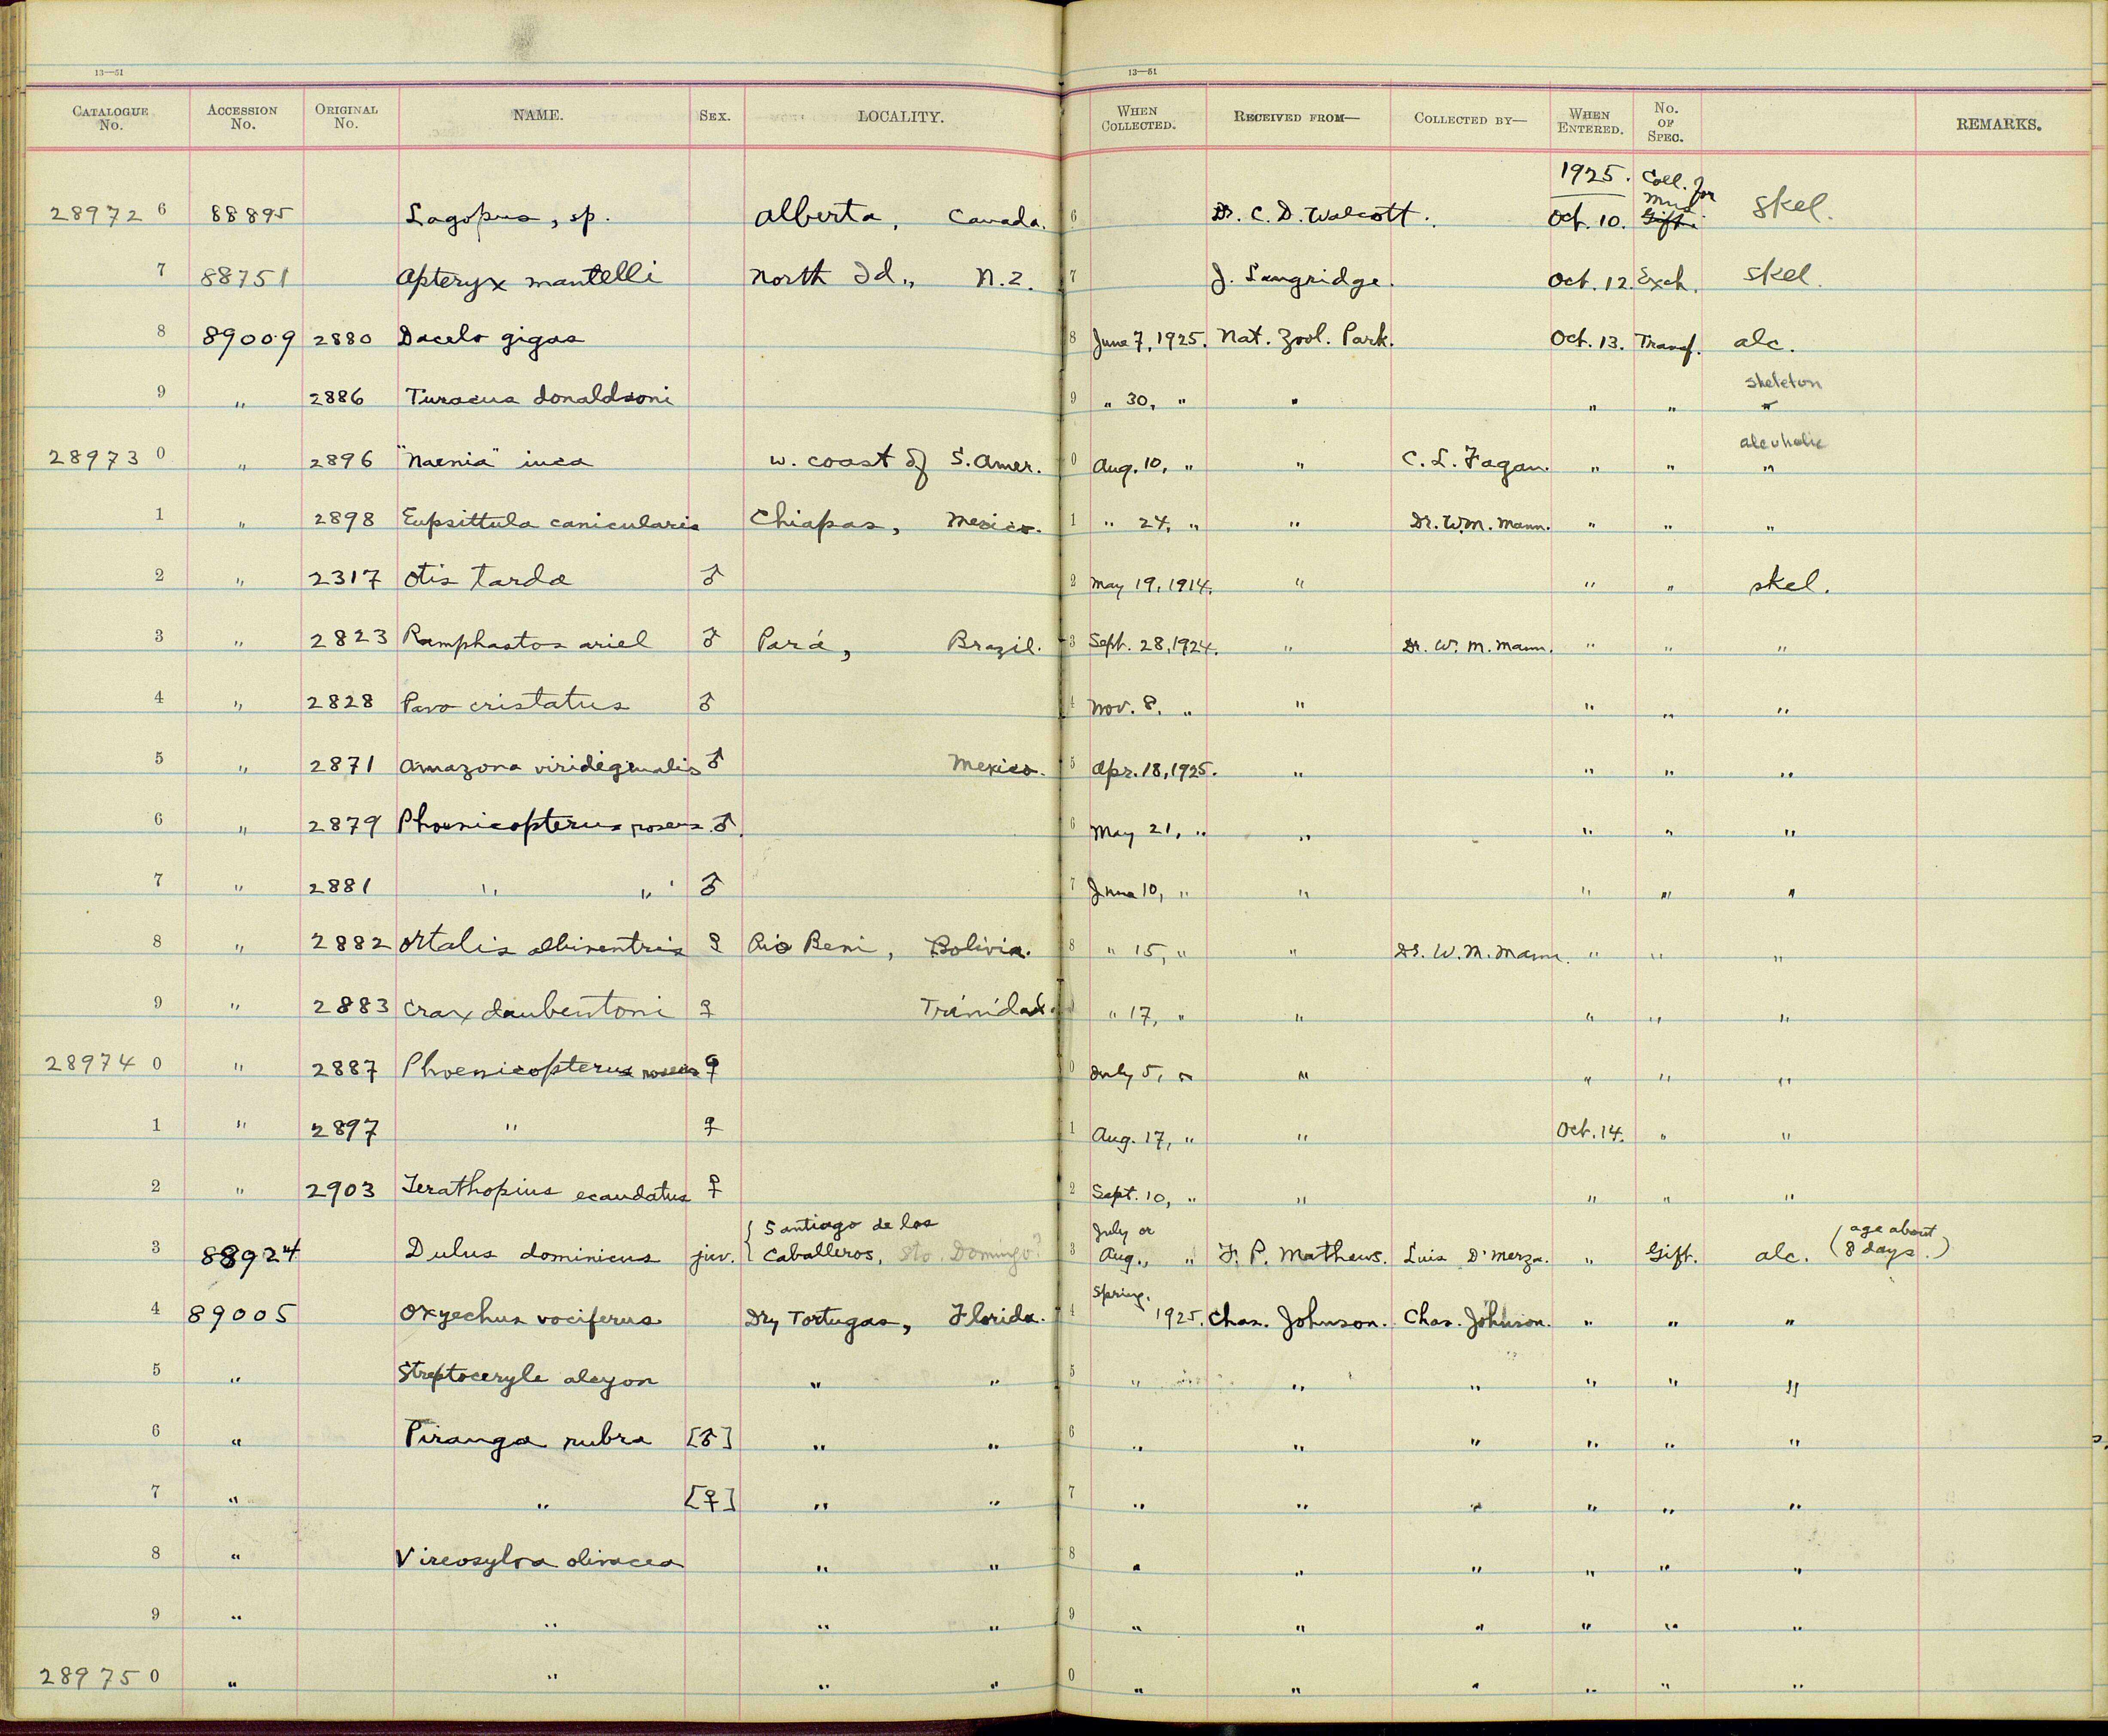 13—51 13—51
CATALOGUE No. ACCESSION No. ORIGINAL No. NAME. SEX. LOCALITY. WHEN COLLECTED. RECEIVED FROM— COLLECTED BY— WHEN ENTERED. No. OF SPEC. REMARKS.
1925. Coll. for Mus
28972 6 88895 Lagopus, sp. Alberta, Canada. 6 Dr. C. D. Walcott. Oct. 10. Gift. skel.
7 88751 Apteryx mantelli North Id., N.Z. 7 J. Langridge. Oct. 12. Exch. skel.
8 89009 2880 Dacelo gigas 8 June 7, 1925. Nat. Zool. Park. Oct. 13. Transf. alc.
skeleton
9 " 2886 Turacus donaldsoni 9 " 30, " " " " "
alcoholic
28973 0 " 2896 "Naenia" inca W. coast of S. Amer. 0 Aug. 10, " " C. L. Fagan. " " "
1 " 2898 Eupsittula canicularis Chiapas, Mexico. 1 " 24, " " Dr. W.M. Mann. " " "
2 " 2317 Otis tarda ♂ 2 May 19, 1914. " " " skel.
3 " 2823 Ramphastos ariel ♂ Pará, Brazil. 3 Sept. 28, 1924. " Dr. W. M. Mann. " " "
4 " 2828 Pavo cristatus ♂ 4 Nov. 8. " " " " "
5 " 2871 Amazona viridigenalis ♂ Mexico. 5 Apr. 18, 1925. " " " "
6 " 2879 Phoenicopterus roseus. ♂. 6 May 21, " " " " "
7 " 2881 " " ♂ 7 June 10, " " " " "
8 " 2882 Ortalis albiventris ♀ Rio Beni, Bolivia. 8 " 15, " " Dr. W. M. Mann. " " "
9 " 2883 Crax daubentoni ♀ Trinidad. 9 " 17, " " " " "
28974 0 " 2887 Phoenicopterus roseus ♀ 0 July 5, " " " " "
1 " 2897 " ♀ 1 Aug. 17, " " Oct. 14. " "
2 " 2903 Terathopius ecaudatus ♀ 2 Sept. 10, " " " " "
Santiago de los July or (age about
3 88924 Dulus dominicus juv. Caballeros, Sto. Domingo? 3 Aug., " F. P. Mathews. Luis D'Merza. " Gift. alc. 8 days.)
Spring.
4 89005 Oxyechus vociferus Dry Tortugas, Florida. 4 1925. Chas. Johnson. Chas. Johnson. " " "
5 " Streptoceryle alcyon " " 5 " " " " " "
6 " Piranga rubra [♂] " " 6 " " " " " "
7 " " [♀] " " 7 " " " " " "
8 " Vireosylva olivacea " " 8 " " " " " "
9 " " " " 9 " " " " " "
28975 0 " " " " 0 " " " " " "